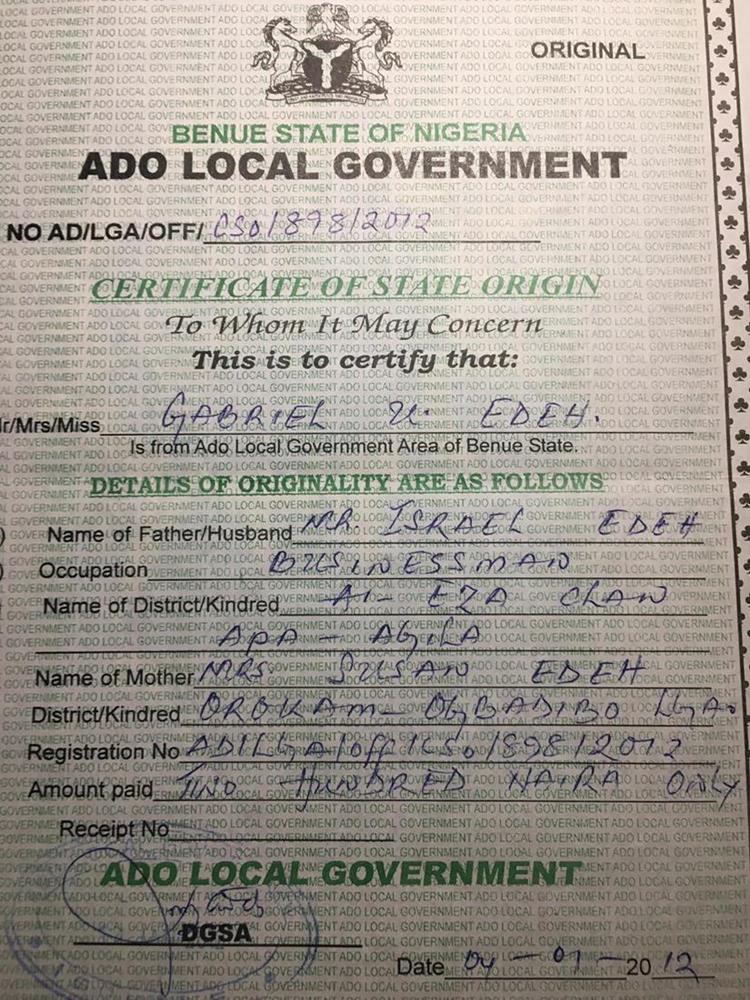 ORIGINAL
BENUE STATE OF NIGERIA
ADO LOCAL GOVERNMENT
NO AD/LGA/OFF/ CSO/898/2012
CERTIFICATE OF STATE ORIGIN
To Whom It May Concern
This is to certify that:
r/Mrs/Miss GABRIEL U. EDEH.
Is from Ado Local Government Area of Benue State.
DETAILS OF ORIGINALITY ARE AS FOLLOWS
) Name of Father/Husband MR. ISRAEL EDEH
) Occupation BUSINESSMAN
Name of District/Kindred AI- EZA CLAN
APA - AGILA
Name of Mother MRS. SUSAN EDEH
District/Kindred OROKAM - OGBADIBO LGA
Registration No AD/LGA/OFF/CSO/898/2012
Amount paid TWO HUNDRED NAIRA ONLY
Receipt No
ADO LOCAL GOVERNMENT
DGSA
Date 04 - 01 - 20 12